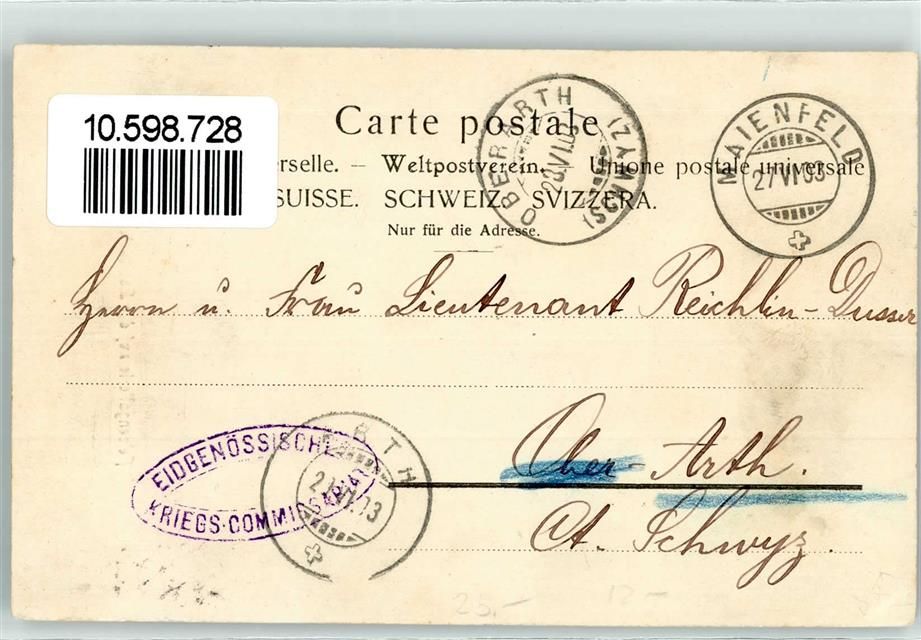 10.598.728
Carte postale
erselle. — Weltpostverein. — Unione postale universale
SUISSE. SCHWEIZ. SVIZZERA.
Nur für die Adresse.
OBERARTH (SCHWYZ)
28.VI.03
MAIENFELD
27 VI 03
Herrn u. Frau Lieutenant Reichlin-Dusser
Ober-Arth.
Ct. Schwyz.
EIDGENÖSSISCHES
KRIEGS-COMMISSARIAT
ARTH
25.-
12.-